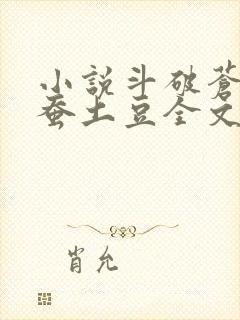 小說斗破蒼
蚕土豆全文
肖允